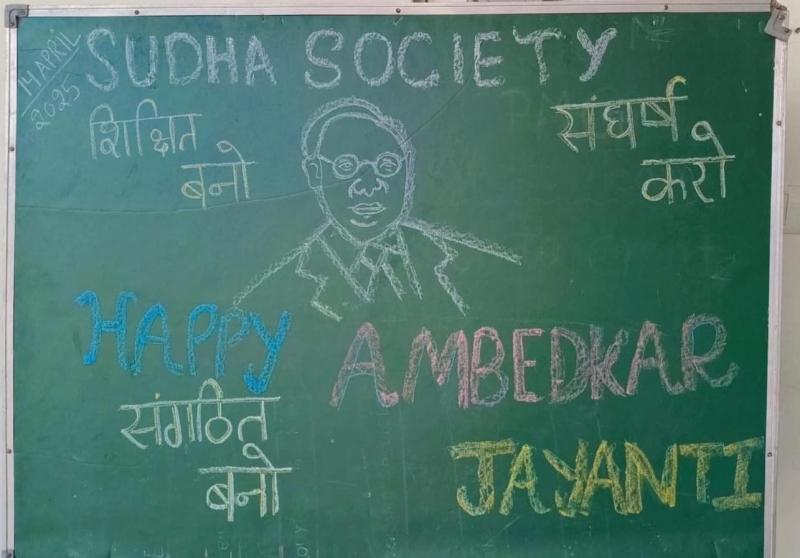 14 APRIL
2025
SUDHA SOCIETY
शिक्षित
बनो
संघर्ष
करो
HAPPY AMBEDKAR
संगठित
बनो
JAYANTI